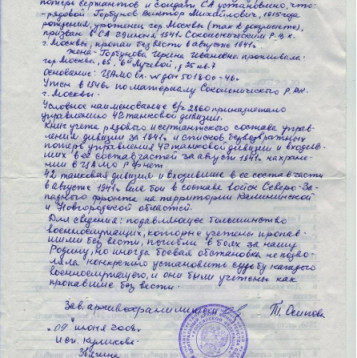 потерь сержантов и солдат СА установлено, что
- рядовой Горбунов Виктор Михайлович, 1915 года
рождения, уроженец гор. Москвы (так в документе),
призван в СА 29 июня 1941г. Сокольническим Р.В.К.
г. Москвы, пропал без вести в августе 1941г.
жена - Горбунова Ирина Ивановна проживала:
гор. Москва,
основание: ЦАМО
Учтен в 1946г. по материалу Сокольнического Р.В.К.
г. Москвы.
Условное наименование в/ч 2860 принадлежало
управлению 42 танковой дивизии.
Книг учета рядового и сержантского состава управ-
ления дивизии за 1941г. и списков безвозвратных
потерь управления 42 танковой дивизии и входив-
ших в её состав частей за август 1941г. на хране-
нии в ЦАМО РФ нет.
42 танковая дивизия и входившие в её состав части
в августе 1941г. вели бои в составе войск Северо-За-
падного фронта на территории Калининской
и Новгородской областей.
Для сведения: подавляющее большинство
военнослужащих, которые учтены пропав-
шими без вести, погибли в боях за нашу
Родину, но иногда боевая обстановка не позво-
ляла конкретно установить судьбу каждого
военнослужащего, и они были учтены как
пропавшие без вести.
Зав. архивохранилищем Т. Осипова
"09" июня 2009г.
исп.